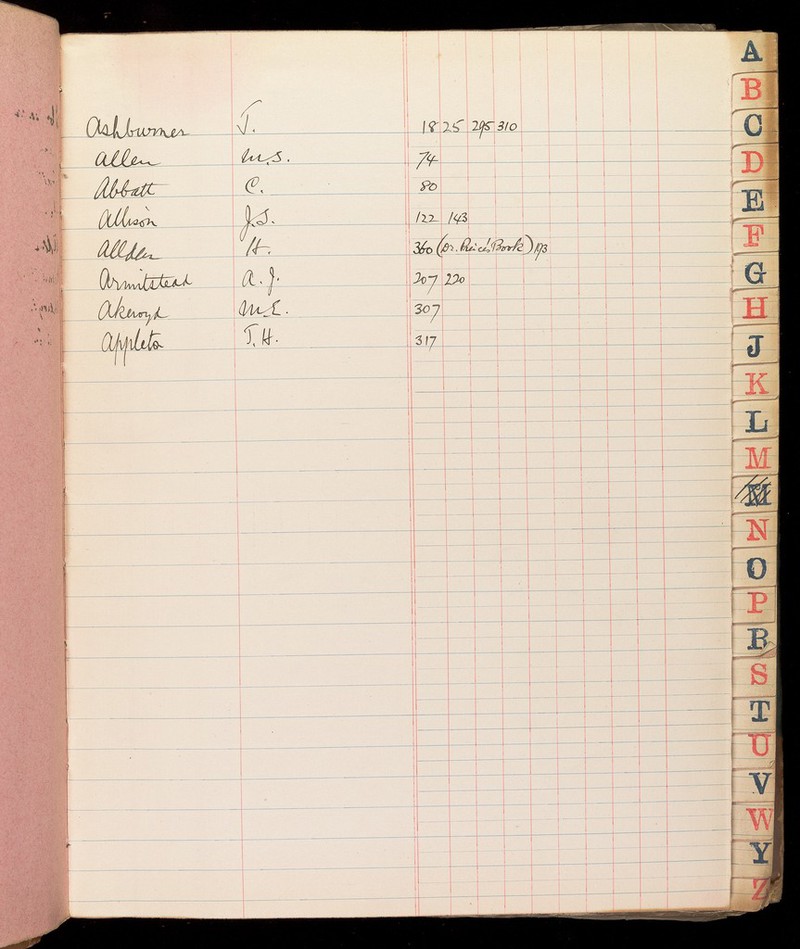 Ashburner J. 18 25 295 310
Allen M.S. 74
Abbatt C. 80
Allison J.S. 122 143
Allden H. 360 (Dr. Price's Book) 193
Armitstead A.J. 207 220
Akeroyd M.E. 307
Appleton T.H. 317
A
B
C
D
E
F
G
H
J
K
L
M
M
N
O
P
R
S
T
U
V
W
Y
Z